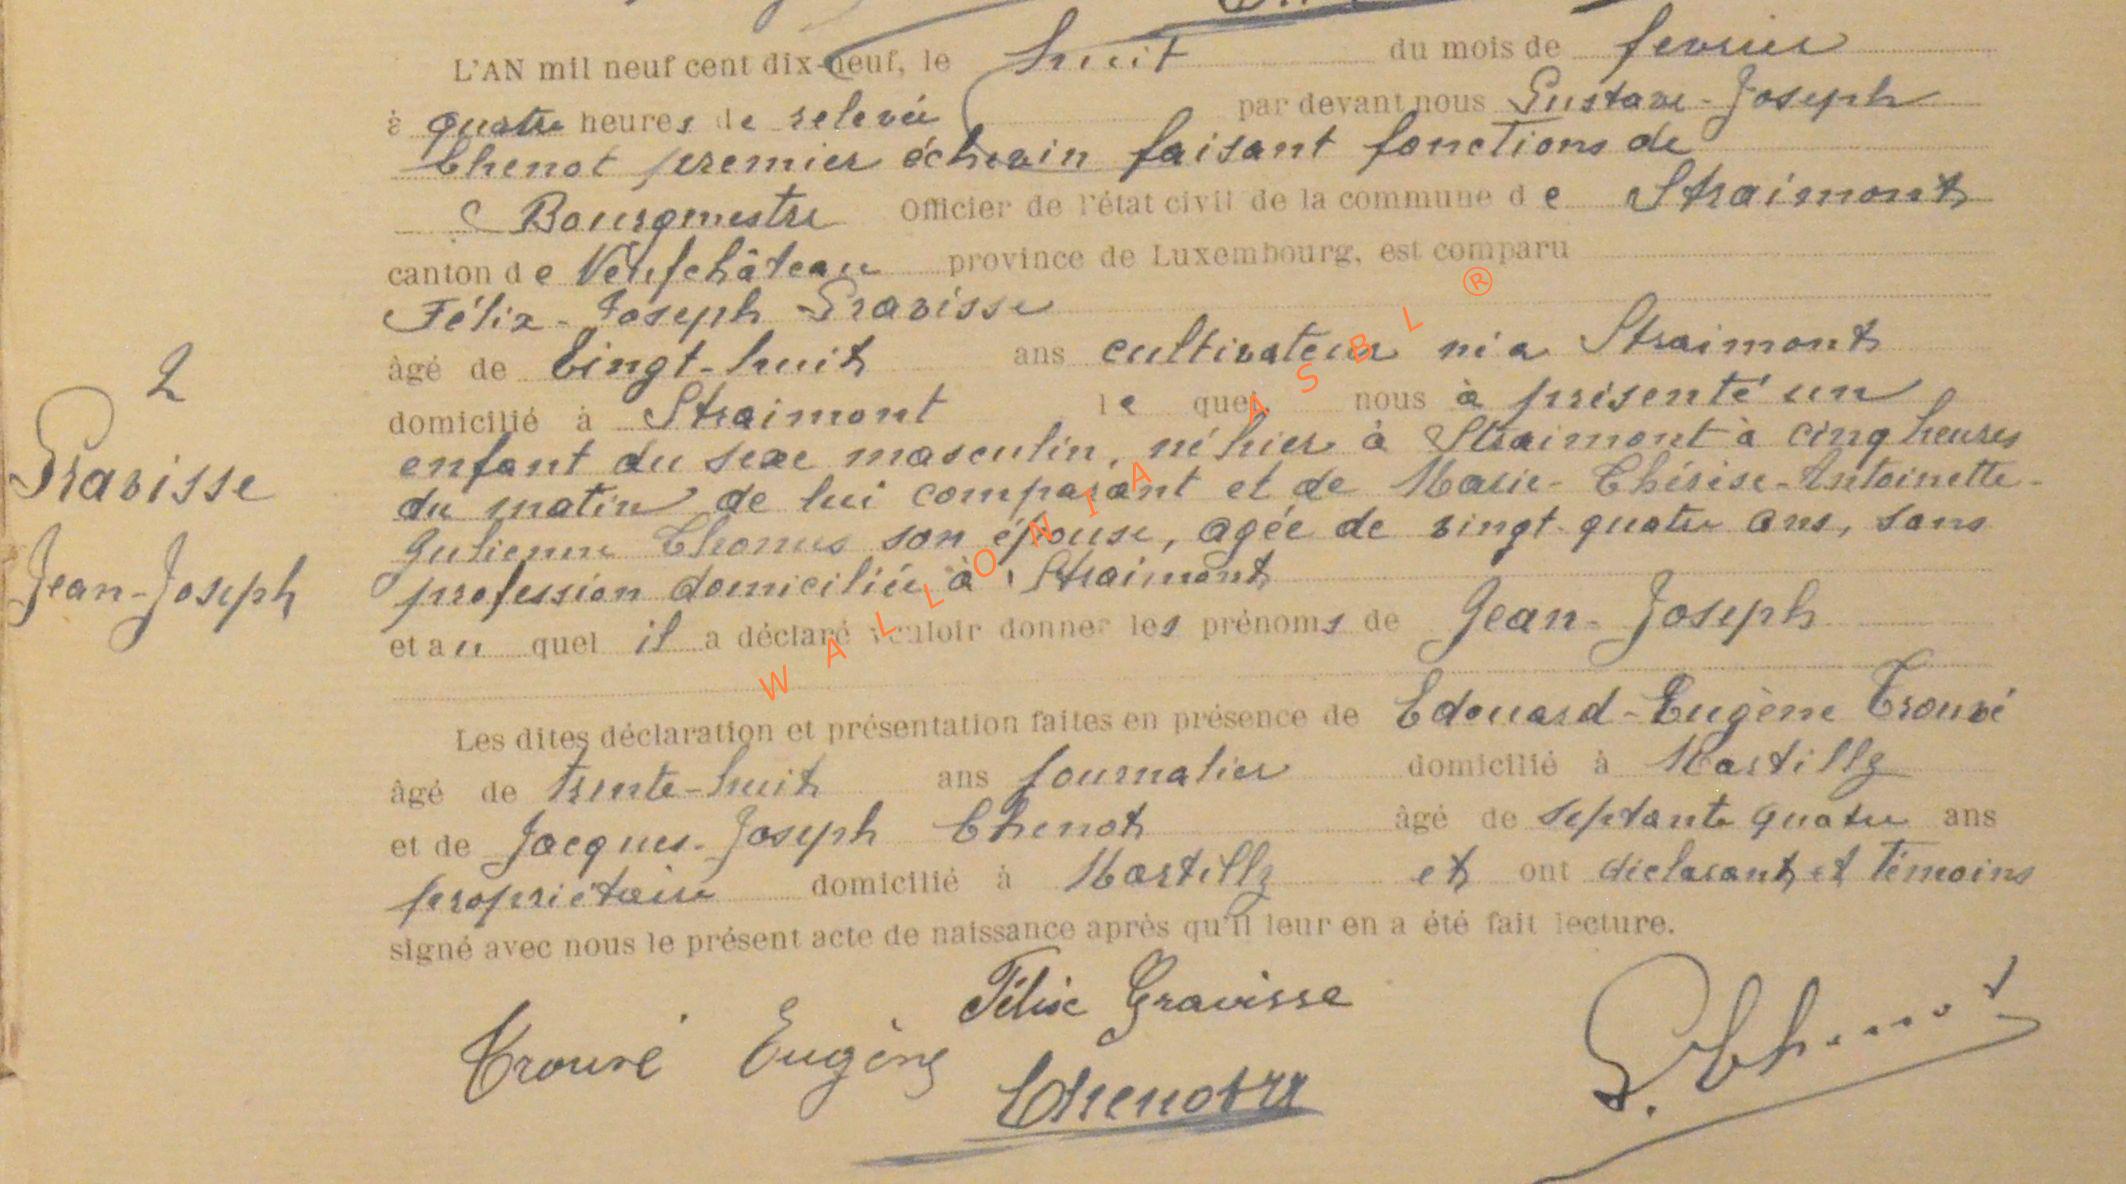 L'AN mil neuf cent dix-neuf, le huit du mois de fevrier
à quatre heures de relevée par devant nous Gustave-Joseph
Thenot premier échevin faisant fonctions de
Bourgmestre Officier de l'état civil de la commune de Straimont
canton de Neufchâteau province de Luxembourg, est comparu
Félix-Joseph Gravisse
âgé de vingt-huit ans cultivateur né a Straimont
domicilié à Straimont le quel nous à présenté un
enfant du sexe masculin, né hier à Straimont à cinq heures
du matin de lui comparant et de Marie-Thérèse-Antoinette-
Julienne Thomus son épouse, agée de vingt-quatre ans, sans
profession domiciliée à Straimont
et au quel il a déclaré vouloir donner les prénoms de Jean-Joseph
Les dites déclaration et présentation faites en présence de Edouard-Eugène Trouvé
âgé de trente-huit ans journalier domicilié à Martilly
et de Jacques-Joseph Thenot âgé de septante quatre ans
propriétaire domicilié à Martilly et ont déclarant et témoins
signé avec nous le présent acte de naissance après qu'il leur en a été fait lecture.
2
Gravisse
Jean-Joseph
Félix Gravisse
Trouvé Eugène
Thenot
G. Thenot
WALLONIA ASBL ®